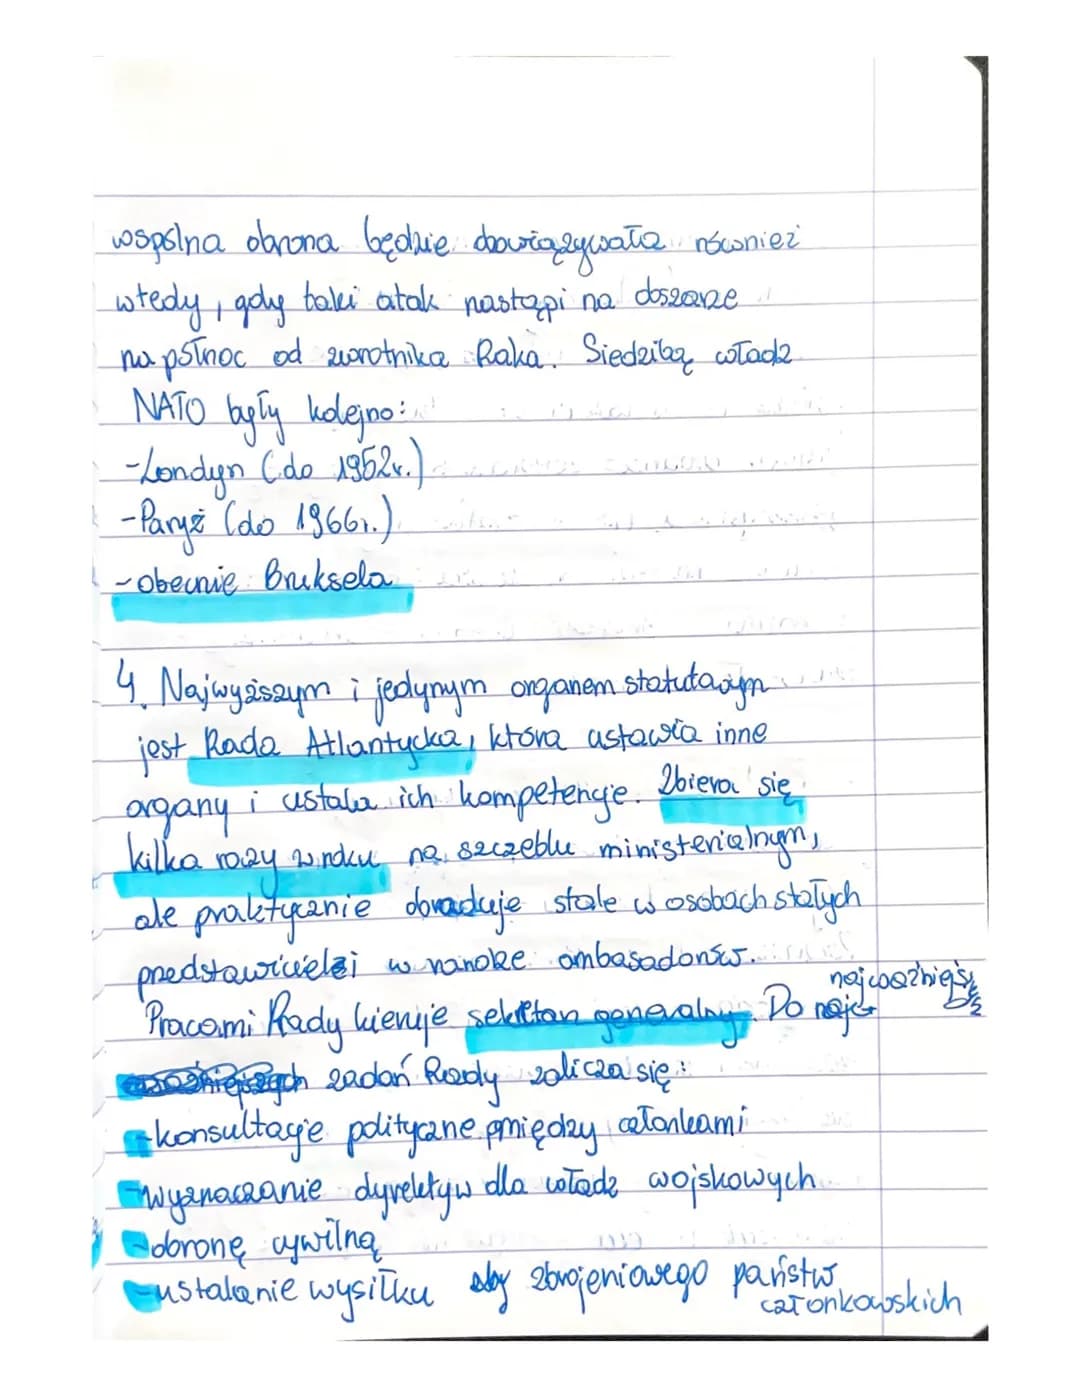 wspólna obrona będzie obowiązywała również
wtedy, gdy taki atak nastąpi na obszarze
na północ od zwrotnika Raka. Siedzibą władz
NATO były kolejno:
-Londyn (do 1952r.)
-Paryż (do 1966r.)
-obecnie Bruksela
4. Najwyższym i jedynym organem statutowym
jest Rada Atlantycka, która ustawia inne
organy i ustala ich kompetencje. Zbiera się
kilka razy w roku na szczeblu ministerialnym,
ale praktycznie obraduje stale w osobach stałych
przedstawicieli w randze ambasadorów.
Pracami Rady kieruje sekretarz generalny. Do najważniejszych
zadań Rady zalicza się:
-konsultacje polityczne pmiędzy członkami
-wyznaczanie dyrektyw dla władz wojskowych
-obronę cywilną
-ustalanie wysiłku zbrojeniowego państw
członkowskich